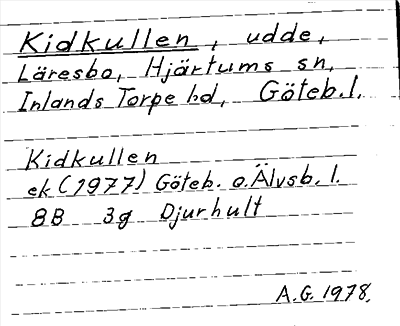 Kidkullen, udde,
Läresbo, Hjärtums sn,
Inlands Torpe hd, Göteb. l.
Kidkullen
ek (1977) Göteb. o. Älvsb. l.
8B 3g Djurhult
A.G. 1978.